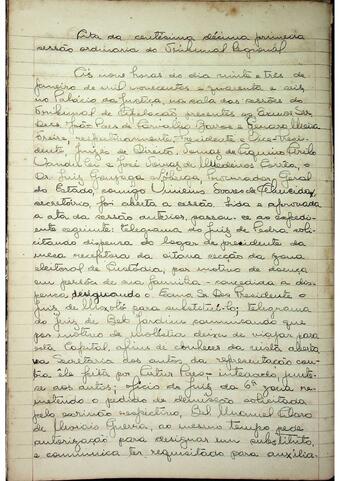 Acta da centésima décima primeira
sessão ordinaria do Tribunal Regional
Ás nove horas do dia vinte e tres de
Janeiro de mil novecentos e quarenta e seis,
no Palacio da Justiça, na sala das sessões do
Tribunal de Apelação, presentes os Exmos Srs.
Des. João Paes de Carvalho Barros e Genaro
Freire, respectivamente, Presidente e Vice-Presi-
dente, Juizes de Direito, Tomaz de Aquino Cirilo
Wanderley e José Tomaz de Medeiros Corrêa, o
Dr. Luiz Gonzaga Nobrega, Procurador Geral
do Estado, comigo Soares de Almeida,
secretário, foi aberta a sessão. Lida e aprovada
a ata da sessão anterior, passou-se ao expedi-
ente seguinte: telegrama do Juiz de Pedra, soli-
citando dispensa do logar de presidente da
mesa receptora da oitava secção da zona
eleitoral de Custódia, por motivo de doença
em pessôa de sua familia - concedida a dis-
pensa, designando o Exmo Sr. Des. Presidente o
Juiz de Moxotó para substitui-lo; telegrama
do Juiz de Belo Jardim comunicando que
por motivo de molestia deixa de viajar para
esta Capital, afim de conhecer da vista aberta
na Secretaria dos autos da representação con-
tra êle feita por - inteirado, junte-
se aos autos; oficio do Juiz da 6ª zona re-
metendo o pedido de demissão solicitada
pelo escrivão respectivo, Bel. Manuel Claro
de Guerra, ao mesmo tempo pede
autorização para designar um substituto,
e comunica ter requisitado para auxilia-